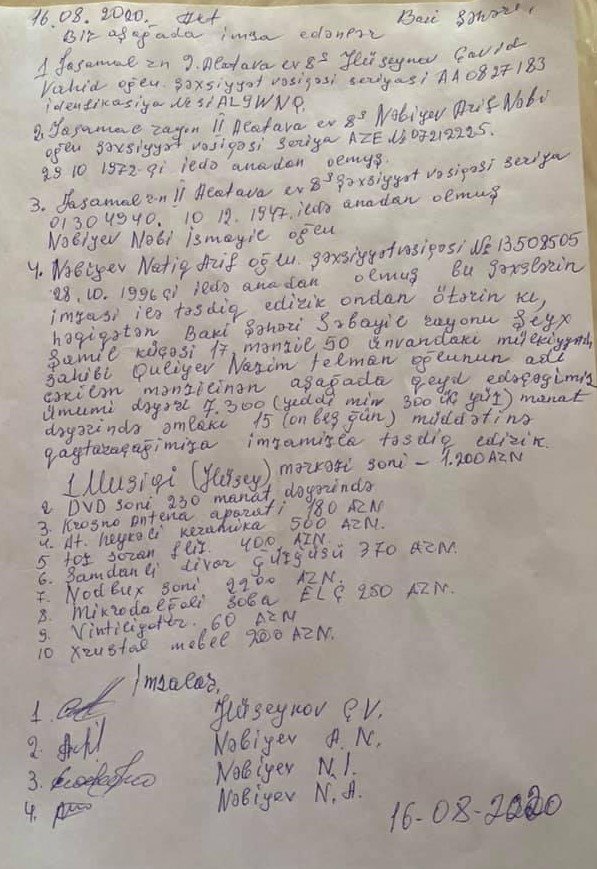 16.08.2020. Akt Bakı şəhəri,
Biz aşağada imza edənlər
1. Yasamal r-n I. Alatava ev 8³ Hüseynov Çavid
Vahid oğlu. şəxsiyyət vəsiqəsi seriyası AA0827183
identikasiya № 5IAL9WNQ.
2. Yasamal rayon II Alatava ev 8³ Nəbiyev Arif Nəbi
oğlu şəxsiyyət vəsiqəsi seriya AZE № 07212225.
29.10 1972-çi ildə anadan olmuş.
3. Yasamal r-n II Alatava ev 8³ şəxsiyyət vəsiqəsi seriya
01304940. 10.12.1947. ildə anadan olmuş
Nəbiyev Nəbi İsmayil oğlu
4. Nəbiyev Natiq Arif oğlu. şəxsiyyət vəsiqəsi № 13509505
28.10.1996 çi ildə anadan olmuş bu şəxslərin
imzası ilə təsdiq edirik ondan ötərin ki,
həqiqətən Baki şəhəri Səbayil rayonu Şeyx
Şamil küçəsi 17 mənzil 50 ünvandaki mülkiyyət
sahibi Quliyev Nazim telman oğlunun adı
çəkilən mənzilinən aşağada qeyd edəcəyimiz
ümumi dəyəri 7.300 (yeddi min 300 üç yüz) manat
dəyərində əmlaki 15 (on beş gün) müddətinə
qaytaracağimiza imzamizla təsdiq edirik.
1 Musiqi (Hüsey) mərkəzi soni - 1.200 AZN
2. DVD soni 230 manat dəyərində
3. Krosno Antena aparati 180 AZN
4. At. heykəli keramika 500 AZN.
5 toz soran fliz. 400 AZN.
6. Şamdanli divar güzgüsü 370 AZN.
7. Nodbux soni 2200 AZN.
8. Mikrodalğali soba ELÇ 250 AZN.
9. Vintiliyator. 60 AZN
10 xrustal mebel 200 AZN.
İmzalar,
1. Hüseynov Ç V.
2. Nəbiyev A. N.
3. Nəbiyev N. İ.
4. Nəbiyev N. A.
16-08-2020